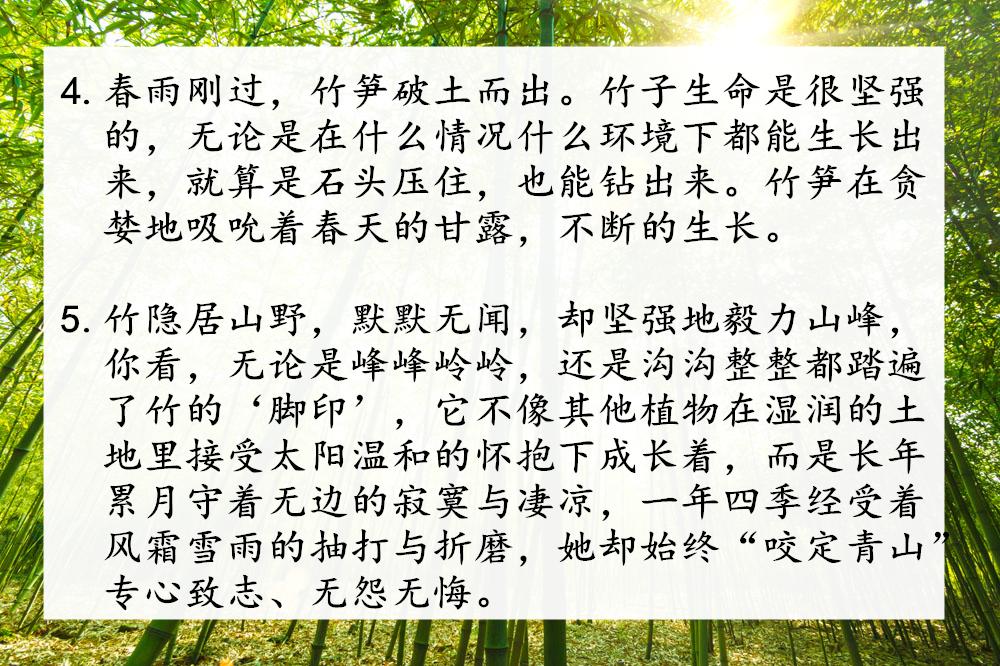 4. 春雨刚过，竹笋破土而出。竹子生命是很坚强
的，无论是在什么情况什么环境下都能生长出
来，就算是石头压住，也能钻出来。竹笋在贪
婪地吸吮着春天的甘露，不断的生长。
5. 竹隐居山野，默默无闻，却坚强地毅力山峰，
你看，无论是峰峰岭岭，还是沟沟整整都踏遍
了竹的‘脚印’，它不像其他植物在湿润的土
地里接受太阳温和的怀抱下成长着，而是长年
累月守着无边的寂寞与凄凉，一年四季经受着
风霜雪雨的抽打与折磨，她却始终“咬定青山”
专心致志、无怨无悔。